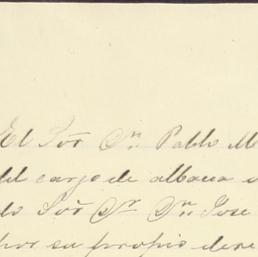 El Sõr Dn. Pablo M
del cargo de albacea
do Sõr Dr. Dn. Jose
por su propio dere